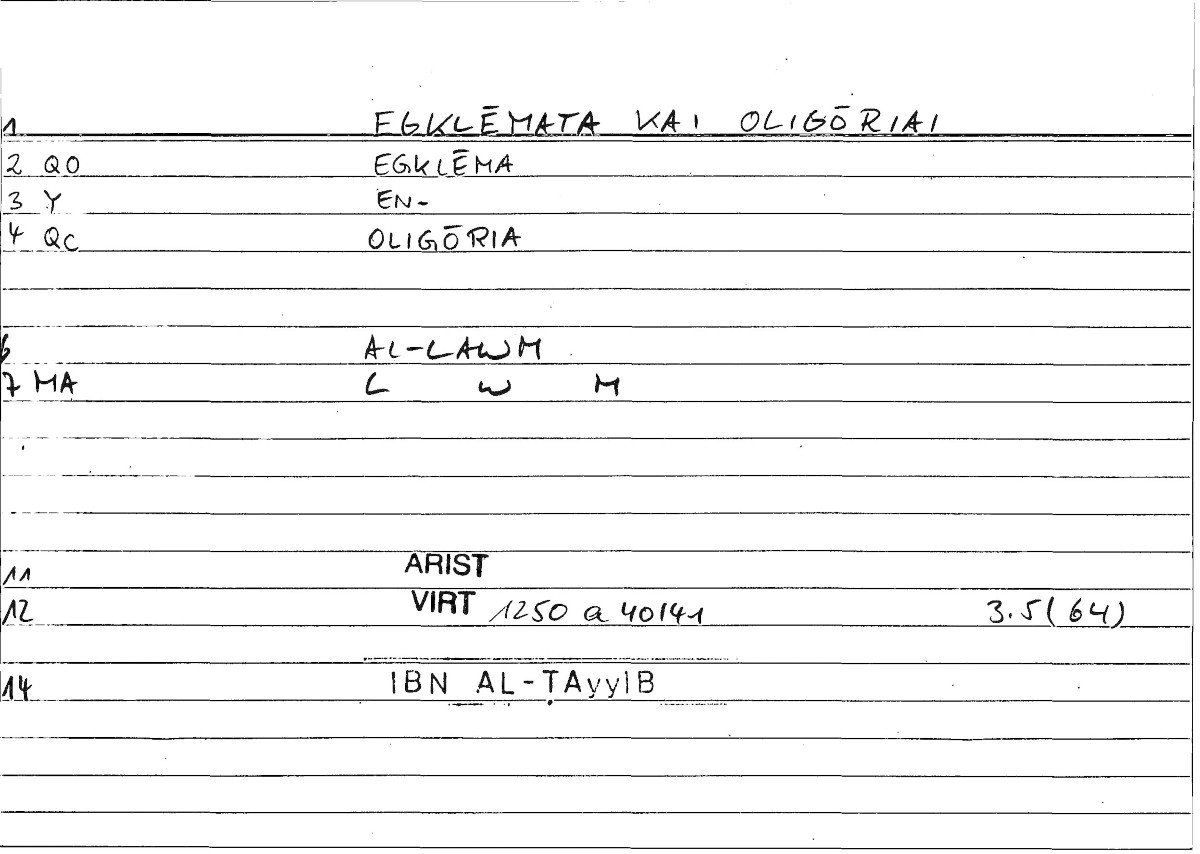 1 EGKLĒMATA KAI OLIGŌRIAI
2 QO EGKLĒMA
3 Y EN-
4 QC OLIGŌRIA
6 AL-LAWM
7 MA L W M
11 ARIST
12 VIRT 1250 a 40/41 3.5(64)
14 IBN AL-ṬAyyIB